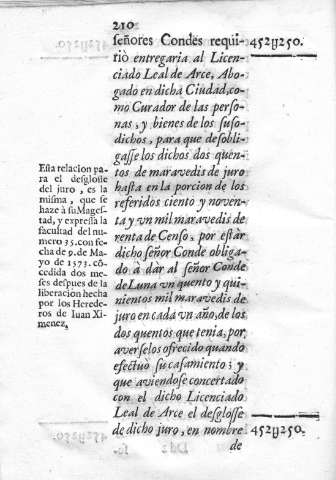 210
señores Condes requi-
riò entregaria al Licen-
ciado Leal de Arce, Abo-
gado en dicha Ciudad, co-
mo Curador de las perso-
nas, y bienes de los suso-
dichos, para que desobli-
gasse los dichos dos quen-
tos de maravedis de juro
hasta en la porcion de los
referidos ciento y noven-
ta y vn mil maravedis de
renta de Censo, por estàr
dicho señor Conde obliga-
do à dar al señor Conde
de Luna vn quento y qui-
nientos mil maravedis de
juro en cada vn año, de los
dos quentos que tenia, por
averselos ofrecido quando
efectuò su casamiento; y
que aviendose concertado
con el dicho Licenciado
Leal de Arce el desglosse
de dicho juro, en nombre
de
452ɥ250.
Esta relacion pa-
ra el desglosse
del juro, es la
misma, que se
haze à su Mages-
tad, y expressa la
facultad del nu-
mero 35. con fe-
cha de 9. de Ma-
yo de 1573. cõ-
cedida dos me-
ses despues de la
liberacion hecha
por los Herede-
ros de Iuan Xi-
menez,
452ɥ250.